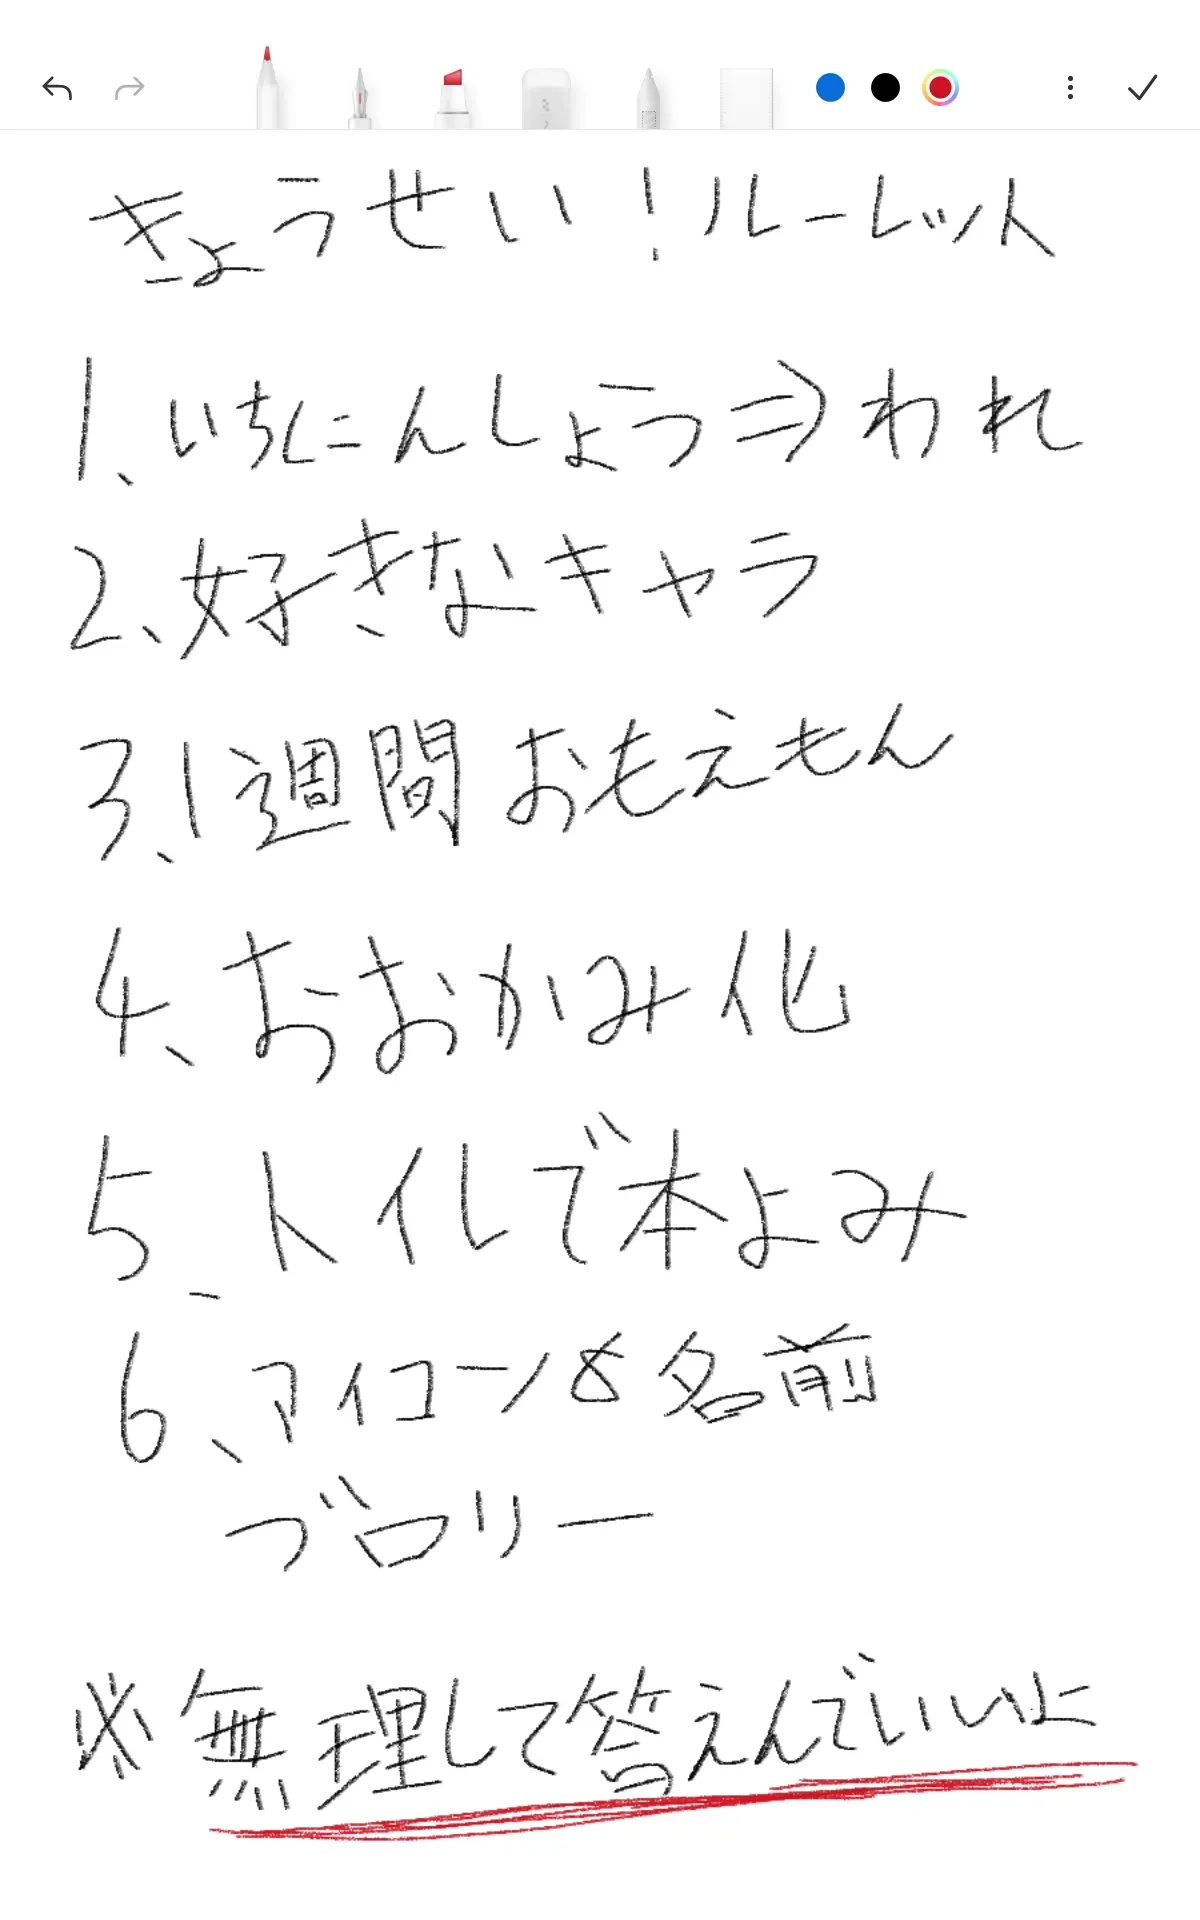 きょうせい!ルーレット
1、いちにんしょう⇒われ
2、好きなキャラ
3、1週間おもえもん
4、おおかみ化
5、トイレで本よみ
6、アイコン&名前
ブロリー
※無理して答えんでいいよ